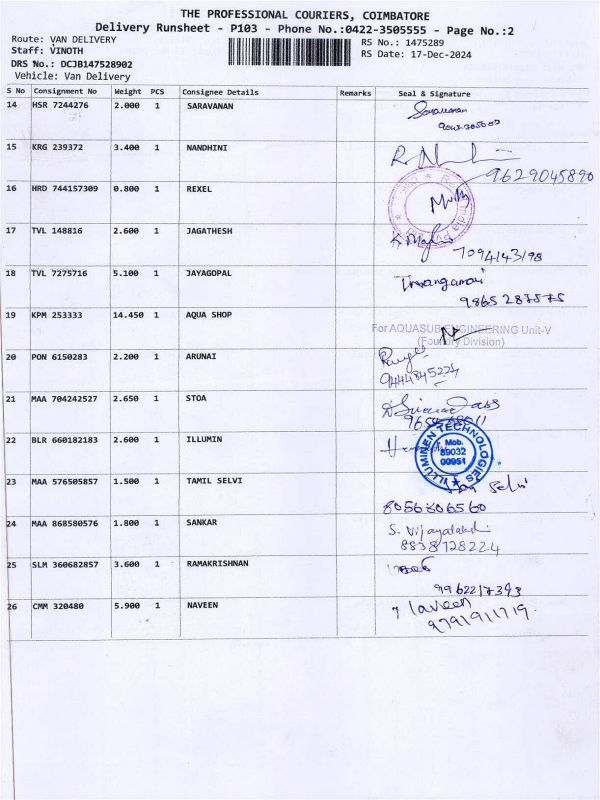 THE PROFESSIONAL COURIERS, COIMBATORE
Delivery Runsheet - P103 - Phone No.:0422-3505555 - Page No.:2
Route: VAN DELIVERY
RS No.: 1475289
Staff: VINOTH
RS Date: 17-Dec-2024
DRS No.: DCJB147528902
Vehicle: Van Delivery
S No Consignment No Weight PCS Consignee Details Remarks Seal & Signature
14 HSR 7244276 2.000 1 SARAVANAN
15 KRG 239372 3.400 1 NANDHINI
9629045890
16 HRD 744157309 0.800 1 REXEL
17 TVL 148816 2.600 1 JAGATHESH
7094143198
18 TVL 7275716 5.100 1 JAYAGOPAL
9865287575
19 KPM 253333 14.450 1 AQUA SHOP
For AQUASUB ENGINEERING Unit-V
(Foundry Division)
20 PON 6150283 2.200 1 ARUNAI
9444845224
21 MAA 704242527 2.650 1 STOA
22 BLR 660182183 2.600 1 ILLUMIN
ILLUMINEN TECHNOLOGIES
Mob.
89032
00951
23 MAA 576505857 1.500 1 TAMIL SELVI
Selvi
8056806560
24 MAA 868580576 1.800 1 SANKAR
S. Vijayalakshmi
8838128224
25 SLM 360682857 3.600 1 RAMAKRISHNAN
9962217393
26 CMM 320480 5.900 1 NAVEEN
Naveen
9791911719.